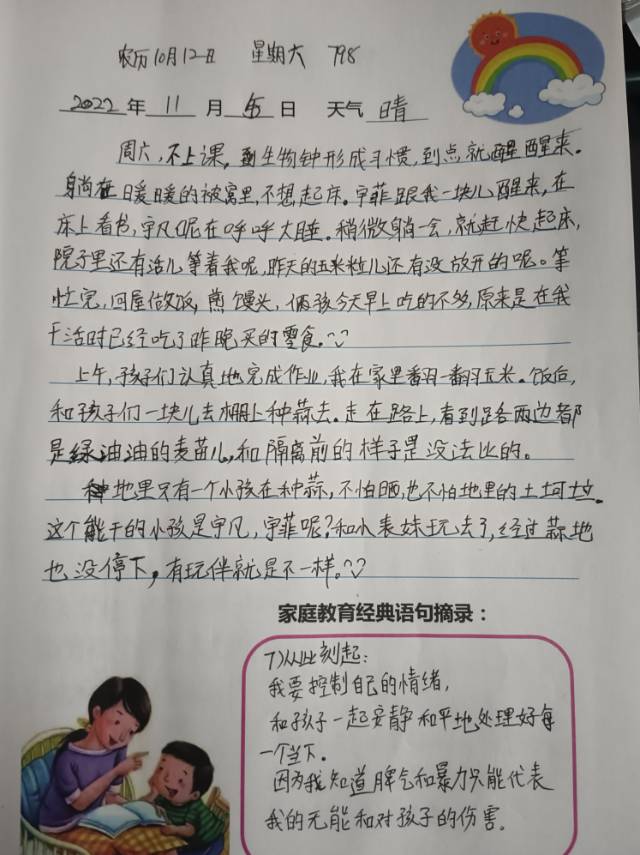 农历10月12日 星期六 798
2022年 11月 5日 天气 晴
周六,不上课,到生物钟形成习惯,到点就醒醒来。
躺在暖暖的被窝里,不想起床。宇菲跟我一块儿醒来,在
床上看书,宇凡呢在呼呼大睡。稍微躺一会,就赶快起床,
院子里还有活儿等着我呢,昨天的玉米粒儿还有没放开的呢。等
忙完,回屋做饭,煎馒头,俩孩今天早上吃的不多,原来是在我
干活时已经吃了昨晚买的零食。
上午,孩子们认真地完成作业,我在家里翻一翻玉米。饭后,
和孩子们一块儿去棚上种蒜去。走在路上,看到路两边都
是绿油油的麦苗儿,和隔离前的样子是没法比的。
地里只有一个小孩在种蒜,不怕晒,也不怕地里的土坷垃。
这个能干的小孩是宇凡,宇菲呢?和小表妹玩去了,经过蒜地
也没停下,有玩伴就是不一样。
家庭教育经典语句摘录:
7)从此刻起:
我要控制自己的情绪,
和孩子一起安静和平地处理好每
一个当下。
因为我知道脾气和暴力只能代表
我的无能和对孩子的伤害。